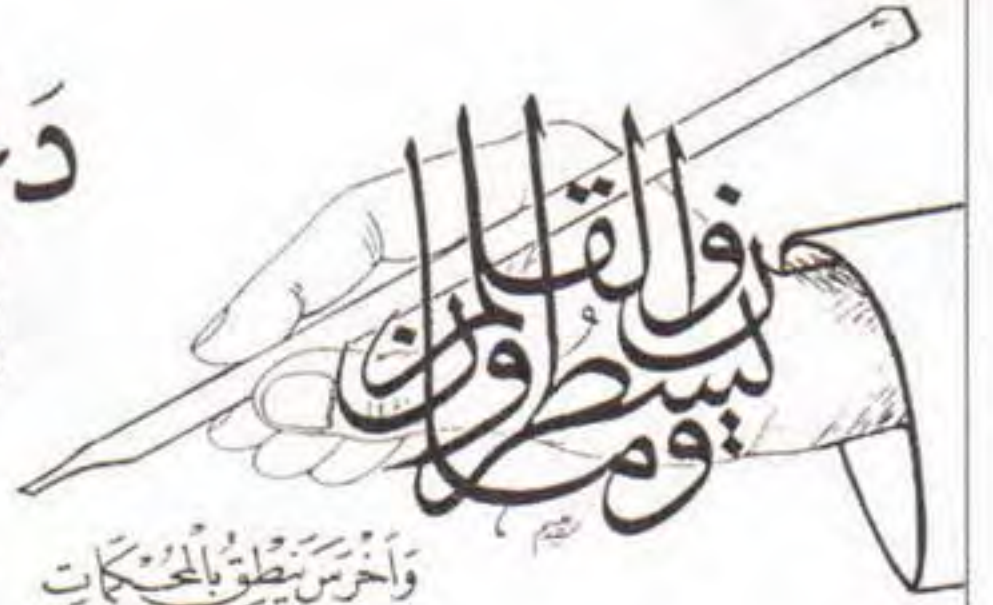 دَ
ن والقلم وما يسطرون
وَاَخْرَسَ يَنْطِقُ بِالْمُحْكَمَاتِ